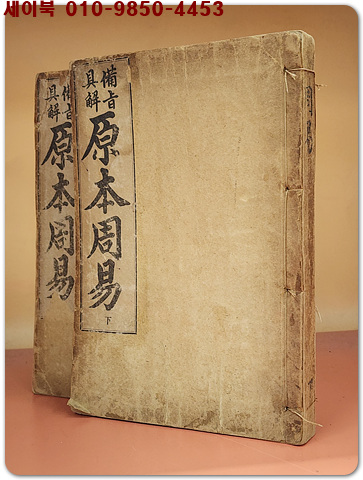 세이북 010-9850-4453
備旨
具解
原本周易
備旨
具解
原本周易
下